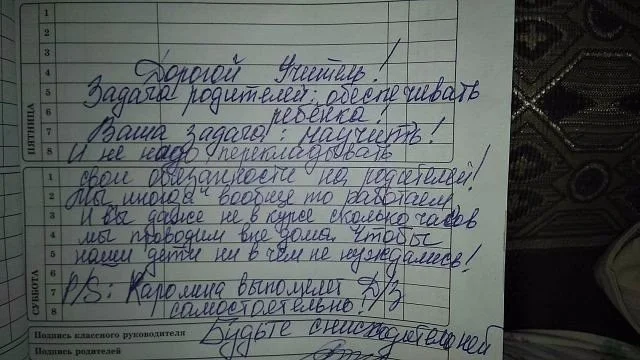 1
2
3
4
5
6
7
8
ПЯТНИЦА
Дорогой Учитель!
Задача родителей: обеспечивать
ребёнка!
Ваша задача: научить!
И не надо перекладывать
свои обязанности на родителей!
Мы иногда вообще то работаем,
И вы даже не в курсе сколько часов
мы проводим вне дома, чтобы
наши дети ни в чём не нуждались!
P/S: Каролина выполняет Д/З
самостоятельно!
Будьте снисходительней
1
2
3
4
5
6
7
8
СУББОТА
Подпись классного руководителя
Подпись родителей